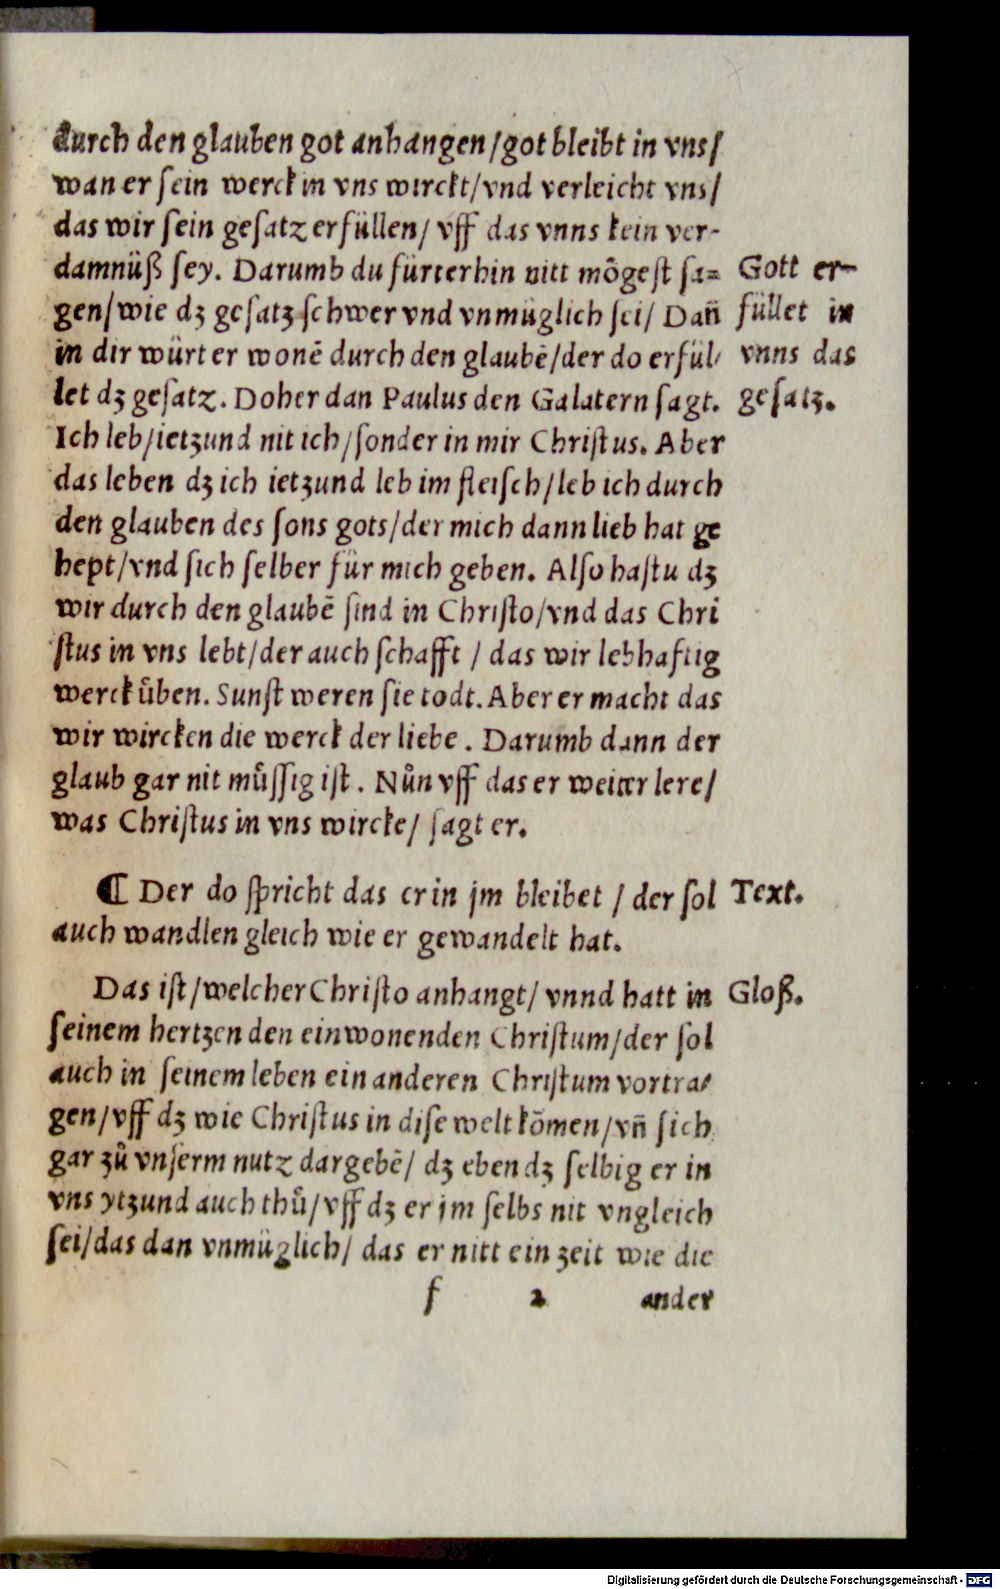 durch den glauben got anhangen/got bleibt in vns/
wan er sein werck in vns wirckt/vnd verleicht vns/
das wir sein gesatz erfüllen/ vff das vnns kein ver-
damnüß sey. Darumb du fürterhin nitt mögest sa=
gen/wie dʒ gesatz schwer vnd vnmüglich sei/ Dan̄
in dir würt er wonē durch den glaubē/der do erfül
let dʒ gesatz. Doher dan Paulus den Galatern sagt.
Gott er-
füllet in
vnns das
gesatz.
Ich leb/ietzund nit ich/sonder in mir Christus. Aber
das leben dʒ ich ietzund leb im fleisch/leb ich durch
den glauben des sons gots/der mich dann lieb hat ge
hept/vnd sich selber für mich geben. Also hastu dʒ
wir durch den glaubē sind in Christo/vnd das Chri
stus in vns lebt/der auch schafft / das wir lebhaftig
werck uͤben. Sunst weren sie todt. Aber er macht das
wir wircken die werck der liebe . Darumb dann der
glaub gar nit muͤssig ist . Nuͦn vff das er weiter lere/
was Christus in vns wircke/ sagt er.
¶ Der do spricht das er in jm bleibet / der sol
auch wandlen gleich wie er gewandelt hat.
Text.
Das ist/welcher Christo anhangt/ vnnd hatt in
seinem hertzen den einwonenden Christum/der sol
Gloß.
auch in seinem leben ein anderen Christum vortra
gen/vff dʒ wie Christus in dise welt kōmen/vn̄ sich
gar zuͦ vnserm nutz dargebē/ dʒ eben dʒ selbig er in
vns ytzund auch thuͦ/vff dʒ er jm selbs nit vngleich
sei/das dan vnmüglich/ das er nitt ein zeit wie die
f 2 ander
Digitalisierung gefördert durch die Deutsche Forschungsgemeinschaft - DFG